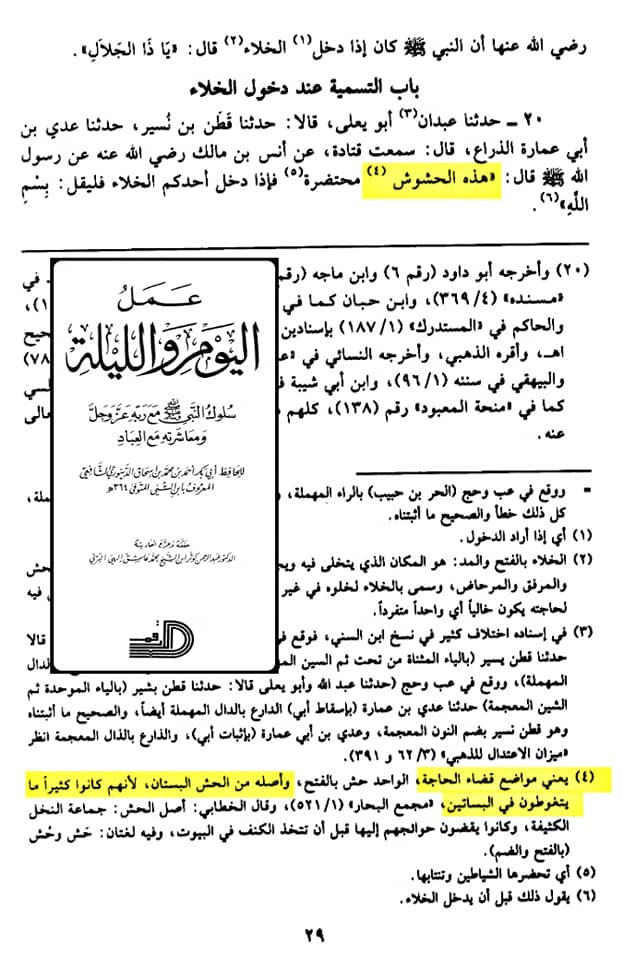 رضي الله عنها أن النبي ﷺ كان إذا دخل(١) الخلاء(٢) قال: «يَا ذَا الجَلَالِ».
باب التسمية عند دخول الخلاء
٢٠ ـ حدثنا عبدان(٣) أبو يعلى، قالا: حدثنا قَطَن بن نُسير، حدثنا عدي بن
أبي عمارة الذراع، قال: سمعت قتادة، عن أنس بن مالك رضي الله عنه عن رسول
الله ﷺ قال: «هذه الحشوش(٤) محتضرة(٥) فإذا دخل أحدكم الخلاء فليقل: بِسْمِ
اللَّهِ»(٦).
(٢٠) وأخرجه أبو داود (رقم ٦) وابن ماجه (رقم في
«مسنده» (٤/٣٦٩)، وابن حبان كما في ١)،
والحاكم في «المستدرك» (١/١٨٧) بإسنادين حيح
اهـ، وأقره الذهبي، وأخرجه النسائي في «ع ٧٨)
والبيهقي في سننه (١/٩٦)، وابن أبي شيبة ف لسي
كما في «منحة المعبود» رقم (١٣٨)، كلهم م عالى
عنه.
عَمَلُ
اليَوْمِ وَاللَّيْلَةِ
سُلُوكُ النَّبِيِّ ﷺ مَعَ رَبِّهِ عَزَّ وَجَلَّ
وَمُعَاشَرَتِهِ مَعَ العِبَادِ
للحافظ أبي بكر أحمد بن محمد بن إسحاق الدينوري الشافعي
المعروف بابن السني المتوفى ٣٦٤هـ
الدكتور عبد الرحمن كوثر ابن الشيخ محمد عاشق إلهي البرني
= ووقع في عب وحج (الحر بن حبيب) بالراء المهملة، هملة،
كل ذلك خطأ والصحيح ما أثبتناه.
(١) أي إذا أراد الدخول.
(٢) الخلاء بالفتح والمد: هو المكان الذي يتخلى فيه ويح حش
والمرفق والمرحاض، وسمى بالخلاء لخلوه في غير فيه
لحاجته يكون خالياً أي واحداً متفرداً.
(٣) في إسناده اختلاف كثير في نسخ ابن السني، فوقع في قالا
حدثنا قطن يسير (بالياء المثناة من تحت ثم السين الم الدال
المهملة)، ووقع في عب وحج (حدثنا عبد الله وأبو يعلى قالا: حدثنا قطن بشير (بالياء الموحدة ثم
الشين المعجمة) حدثنا عدي بن عمارة (بإسقاط أبي) الدارع بالدال المهملة أيضاً، والصحيح ما أثبتناه
وهو قطن نسير بضم النون المعجمة، وعدي بن أبي عمارة (بإثبات أبي)، والذارع بالذال المعجمة انظر
«ميزان الاعتدال للذهبي» (٣/٦٢ و ٣٩١).
(٤) يعني مواضع قضاء الحاجة، الواحد حش بالفتح، وأصله من الحش البستان، لأنهم كانوا كثيراً ما
يتغوطون في البساتين، «مجمع البحار» (١/٥٢١)، وقال الخطابي: أصل الحش: جماعة النخل
الكثيفة، وكانوا يقضون حوائجهم إليها قبل أن تتخذ الكنف في البيوت، وفيه لغتان: حَش وحُش
(بالفتح والضم).
(٥) أي تحضرها الشياطين وتنتابها.
(٦) يقول ذلك قبل أن يدخل الخلاء.
٢٩